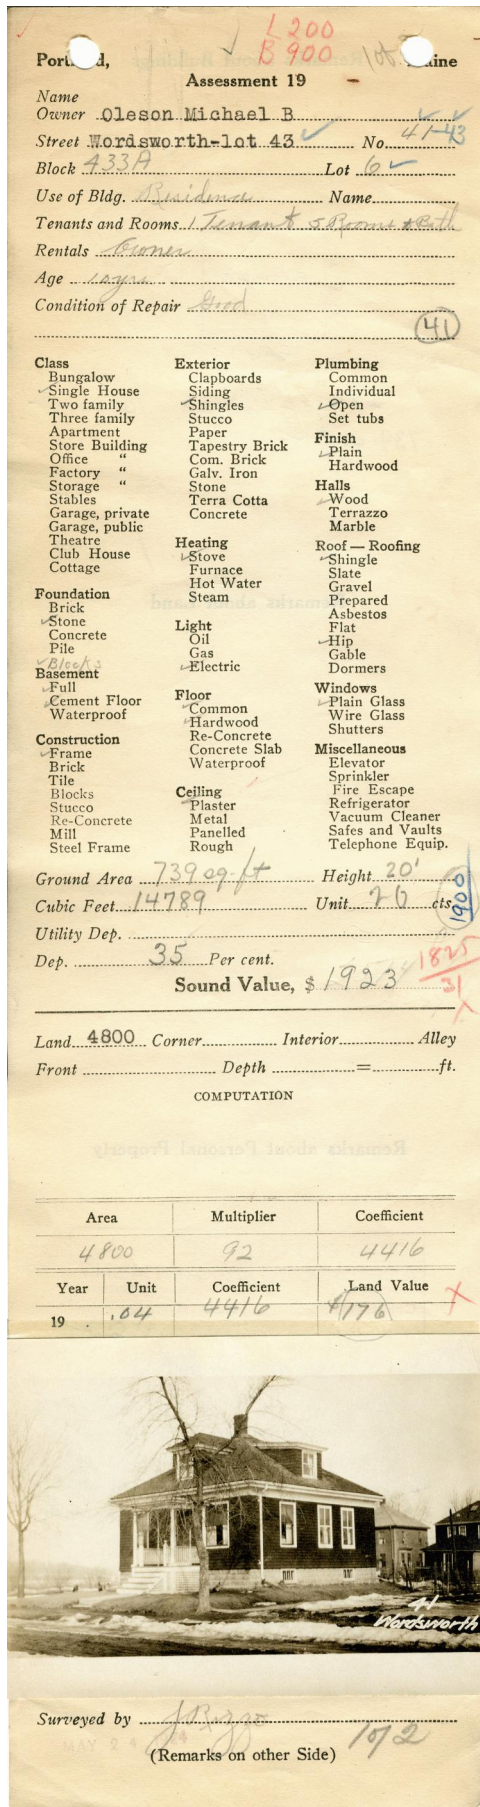 L 200
B 900
Portland, Maine
Assessment 19
Name
Owner Oleson Michael B
Street Wordsworth-lot 43 No. 41-43
Block 433A Lot 6
Use of Bldg. Residence Name
Tenants and Rooms 1 Tenant 5 Rooms & Bath
Rentals Owner
Age 10 yrs
Condition of Repair Good
41
Class
Bungalow
Single House
Two family
Three family
Apartment
Store Building
Office "
Factory "
Storage "
Stables
Garage, private
Garage, public
Theatre
Club House
Cottage
Foundation
Brick
Stone
Concrete
Pile
Blocks
Basement
Full
Cement Floor
Waterproof
Construction
Frame
Brick
Tile
Blocks
Stucco
Re-Concrete
Mill
Steel Frame
Exterior
Clapboards
Siding
Shingles
Stucco
Paper
Tapestry Brick
Com. Brick
Galv. Iron
Stone
Terra Cotta
Concrete
Heating
Stove
Furnace
Hot Water
Steam
Light
Oil
Gas
Electric
Floor
Common
Hardwood
Re-Concrete
Concrete Slab
Waterproof
Ceiling
Plaster
Metal
Panelled
Rough
Plumbing
Common
Individual
Open
Set tubs
Finish
Plain
Hardwood
Halls
Wood
Terrazzo
Marble
Roof — Roofing
Shingle
Slate
Gravel
Prepared
Asbestos
Flat
Hip
Gable
Dormers
Windows
Plain Glass
Wire Glass
Shutters
Miscellaneous
Elevator
Sprinkler
Fire Escape
Refrigerator
Vacuum Cleaner
Safes and Vaults
Telephone Equip.
Ground Area 739 sq-ft Height 20'
Cubic Feet 14789 Unit 20 cts.
1900
Utility Dep.
Dep. 35 Per cent.
1825
31
Sound Value, $ 1923
Land 4800 Corner Interior Alley
Front Depth = ft.
COMPUTATION
Area Multiplier Coefficient
4800 92 4416
Year Unit Coefficient Land Value
19 .04 4416 $176
41
Wordsworth
Surveyed by
MAY 24
(Remarks on other Side)